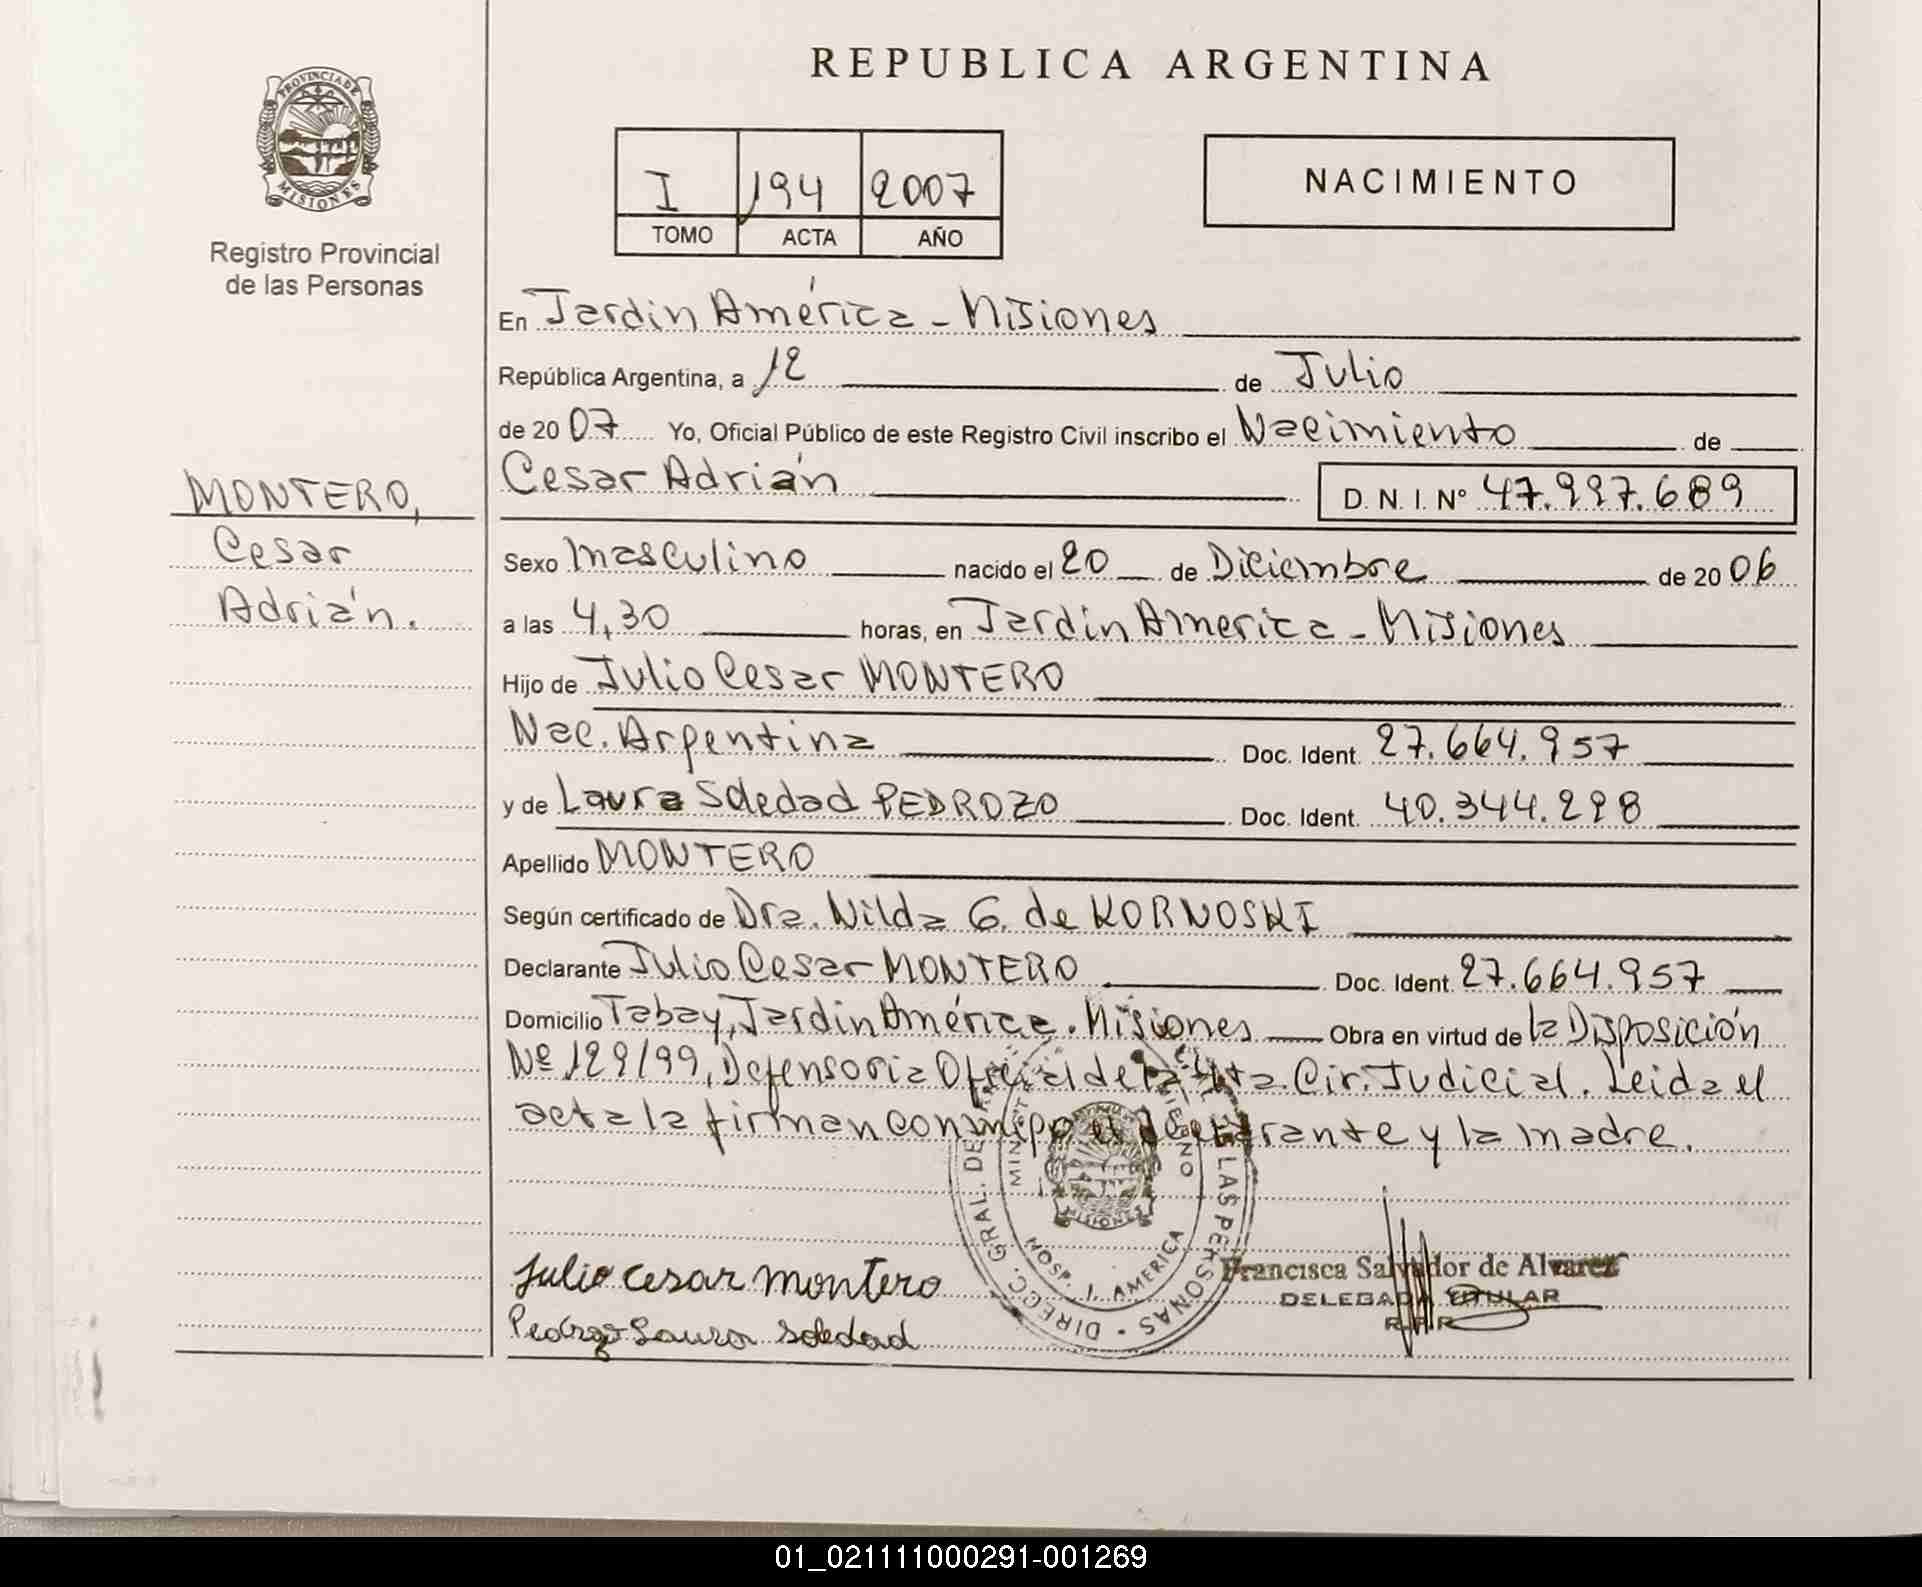 REPUBLICA ARGENTINA
PROVINCIA DE MISIONES
Registro Provincial
de las Personas
I 194 2007
TOMO ACTA AÑO
NACIMIENTO
En Jardin América - Misiones
República Argentina, a 12 de Julio
de 2007 Yo, Oficial Público de este Registro Civil inscribo el Nacimiento de
Cesar Adrián D. N. I. Nº 47.997.689
MONTERO,
Cesar
Adrián.
Sexo Masculino nacido el 20 de Diciembre de 2006
a las 4,30 horas, en Jardin America - Misiones
Hijo de Julio Cesar MONTERO
Nac. Argentina Doc. Ident. 27.664.957
y de Laura Soledad PEDROZO Doc. Ident. 40.344.298
Apellido MONTERO
Según certificado de Dra. Nilda G. de KORNOSKI
Declarante Julio Cesar MONTERO Doc. Ident. 27.664.957
Domicilio Tabay, Jardin América. Misiones Obra en virtud de la Disposición
Nº 129/99, Defensoria Oficial de la 4ta. Cir. Judicial. Leida el
acta la firman conmigo el declarante y la madre.
DIRECC. GRAL. DE LAS PERSONAS
HOSP. J. AMERICA
MISIONES
Julio cesar montero
Pedrozo Laura soledad
Francisca Salvador de Alvarez
DELEGADA TITULAR
R.P.P.
01_021111000291-001269